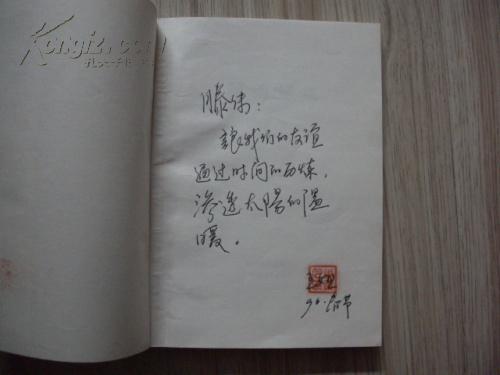 Kongfz.com
孔夫子旧书网
滕伟:
愿我们的友谊
通过时间的历炼,
渗透太阳的温
暖。
春节